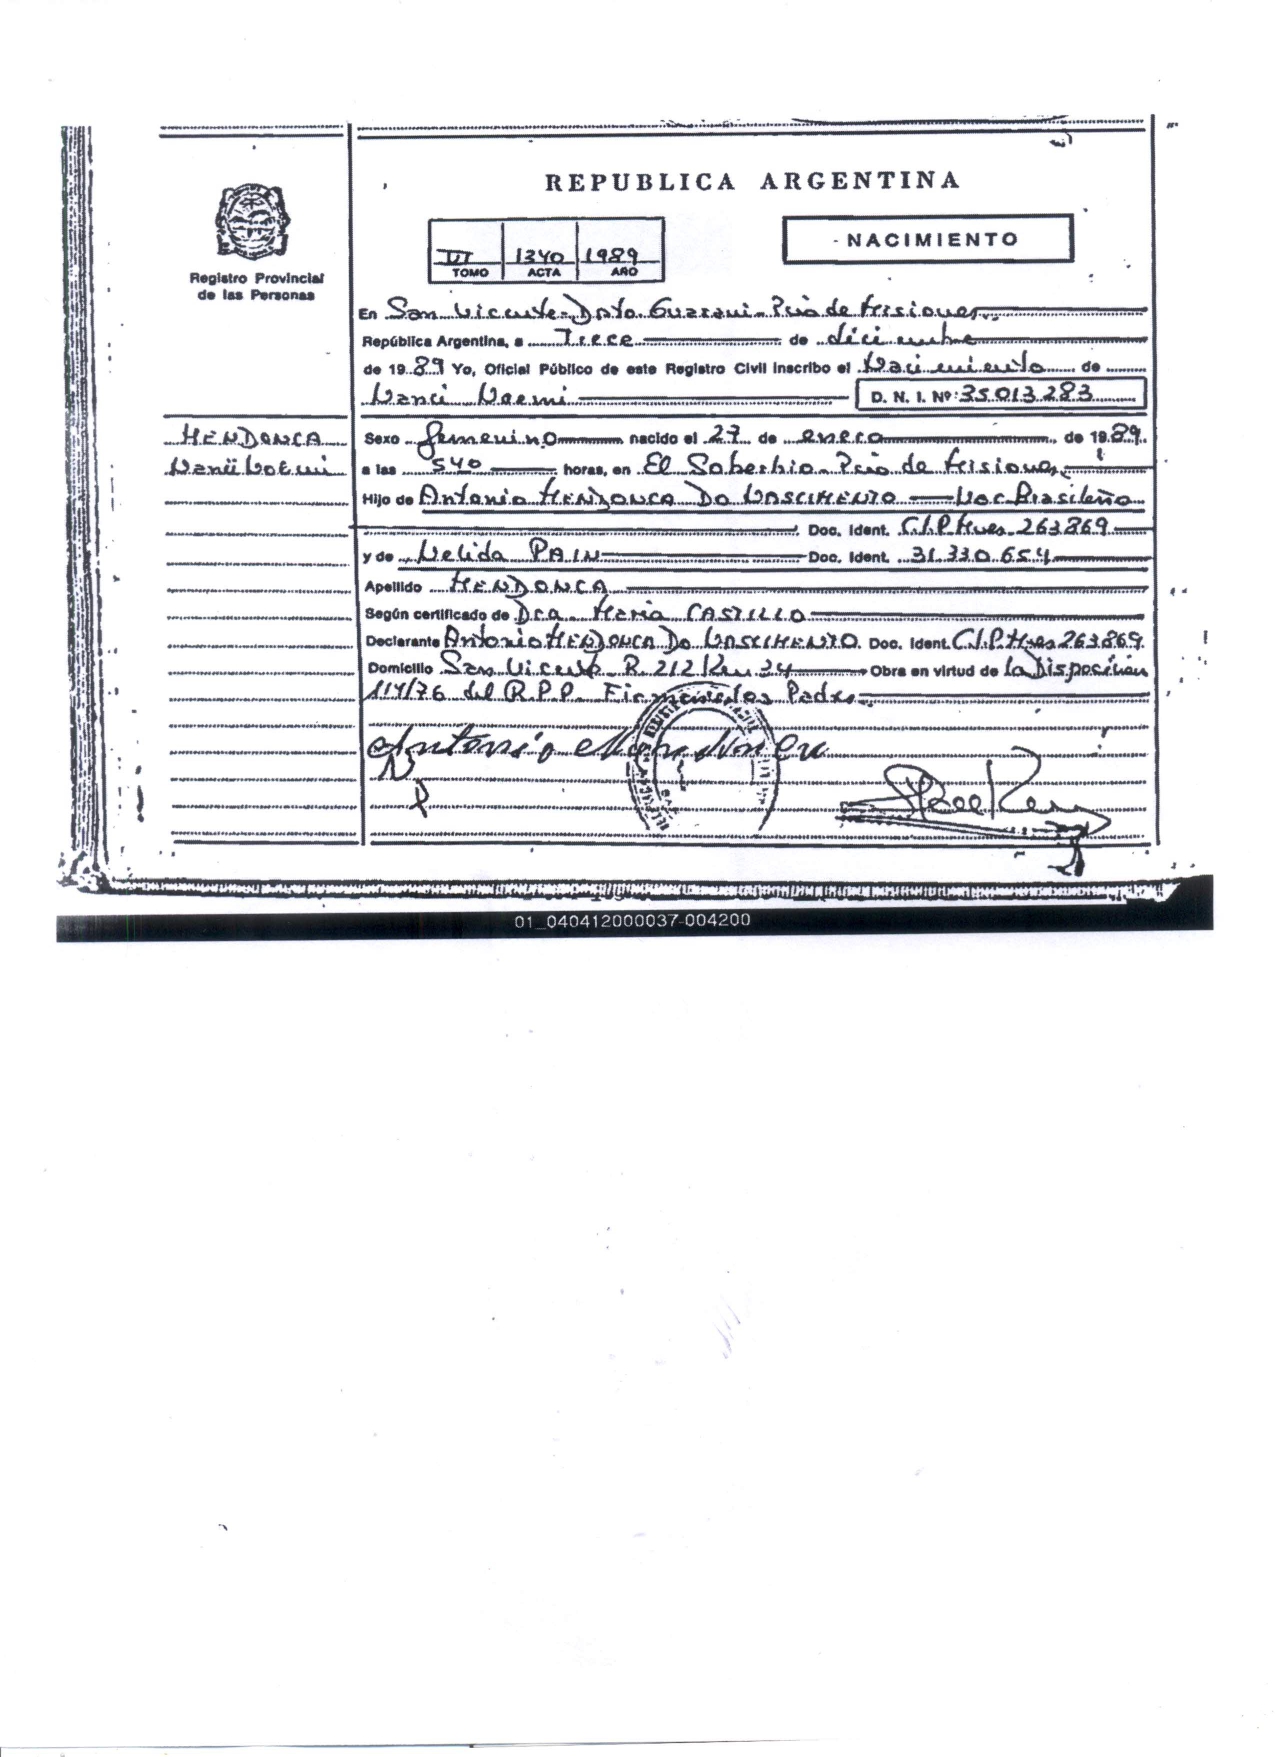 REPUBLICA ARGENTINA
NACIMIENTO
III 1340 1989
TOMO ACTA AÑO
Registro Provincial
de las Personas
En San Vicente Dpto. Guarani Pcia de Misiones
República Argentina, a Trece de diciembre
de 1989 Yo, Oficial Público de este Registro Civil inscribo el Nacimiento de
Nanci Noemi D. N. I. Nº: 35.013.283
MENDONCA
Noemi
Sexo femenino nacido el 27 de enero de 1989
a las 540 horas, en El Soberbio Pcia de Misiones
Hijo de Antonio MENDONCA DO NASCIMENTO Nac. Brasileño
Doc. Ident. C.I.P. Mnes 263869
y de Nelida PAIN Doc. Ident. 31.330.654
Apellido MENDONCA
Según certificado de Dra. Maria CASTILLO
Declarante Antonio MENDONCA DO NASCIMENTO. Doc. Ident. C.I.P. Mnes 263869
Domicilio San Vicente R. 212 Km 34 Obra en virtud de la Disposicion
114/76 del R.P.P. Firman los Padres
Antonio
N
P
01_040412000037-004200